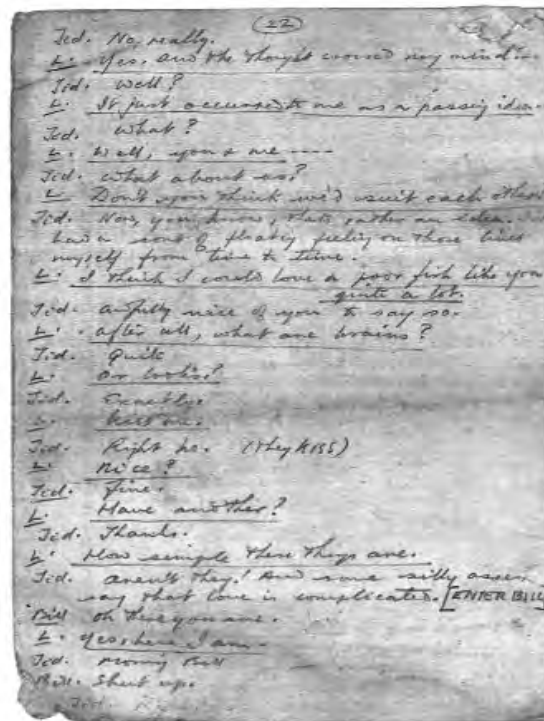 (22)
Ted. No, really.
L. Yes, and the thought crossed my mind
Ted. Well?
L. It just occurred to me as a passing idea
Ted. What?
L. Well, you & me ----
Ted. What about us?
L. Don't you think we'd suit each other
Ted. Now, you know, that's rather an idea.
had a sort of feeling on those lines
myself from time to time.
L. I think I could love a poor fish like you
quite a lot.
Ted. Awfully nice of you to say so.
L. After all, what are brains?
Ted. Quite
L. Or looks?
Ted. Exactly.
L. Kiss me.
Ted. Right ho. (They KISS)
L. Nice?
Ted. Fine.
L. Have another?
Ted. Thanks.
L. How simple these things are.
Ted. Aren't they! And some silly asses
say that love is complicated. [ENTER BILL
Bill Oh there you are.
L. Yes, here I am.
Ted. Morning Bill
Bill. Shut up.
Ted.